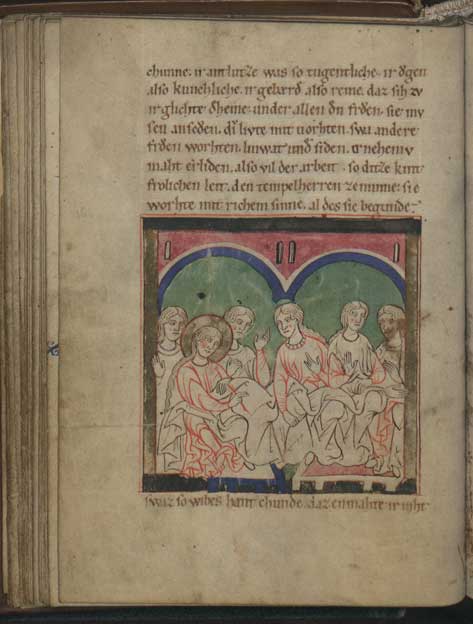 chunne. ir antlutze was so tugentliche. ir ogen
also kunchliche. ir gebærd also reine. daz sih zv
ir glichte dheine. under allen dn frŏen. sie mv
sen anseden. di livte mit vorhten. swa andere
frŏen worhten. linwat und siden. er nehein
maht erliden. also vil der arbeit. so ditze kint
frolichen leit. den tempelherren ze minne. sie
worhte mit richem sinne. al des sie begunde.
swaz so wibes hant chunde. daz en mahte ir niht